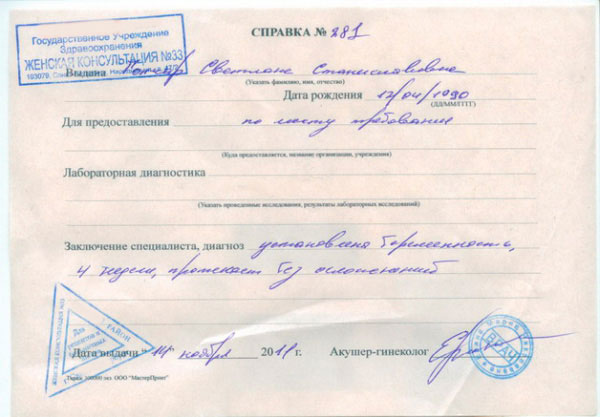 Государственное Учреждение
Здравоохранения
ЖЕНСКАЯ КОНСУЛЬТАЦИЯ №33
СПРАВКА № 281
Выдана Светлане Станиславовне
(Указать фамилию, имя, отчество)
Дата рождения 12/04/1990
(ДД/ММ/ГГГГ)
Для предоставления по месту требования
(Куда предоставляется, название организации, учреждения)
Лабораторная диагностика
(Указать проведенные исследования, результаты лабораторных исследований)
Заключение специалиста, диагноз установлена беременность,
4 недели, протекает без осложнений
ЖЕНСКАЯ КОНСУЛЬТАЦИЯ №33
РАЙОН
Для
ВРАЧ
Дата выдачи "14" ноября 2011г. Акушер-гинеколог
Тираж 100000 экз. ООО "МастерПринт"